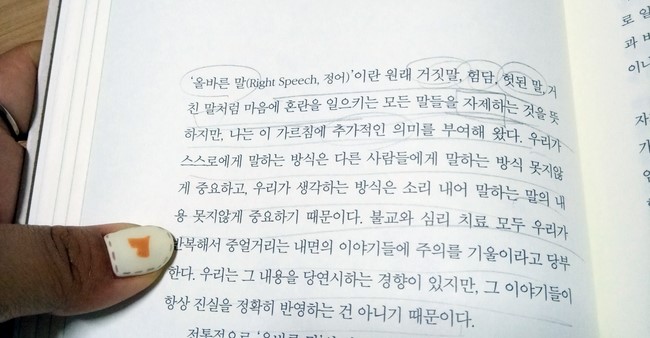 '올바른 말(Right Speech, 정어)'이란 원래 거짓말, 험담, 헛된 말, 거
친 말처럼 마음에 혼란을 일으키는 모든 말들을 자제하는 것을 뜻
하지만, 나는 이 가르침에 추가적인 의미를 부여해 왔다. 우리가
스스로에게 말하는 방식은 다른 사람들에게 말하는 방식 못지않
게 중요하고, 우리가 생각하는 방식은 소리 내어 말하는 말의 내
용 못지않게 중요하기 때문이다. 불교와 심리 치료 모두 우리가
반복해서 중얼거리는 내면의 이야기들에 주의를 기울이라고 당부
한다. 우리는 그 내용을 당연시하는 경향이 있지만, 그 이야기들이
항상 진실을 정확히 반영하는 건 아니기 때문이다.
전통적으로
로 일
과 비
이나
자